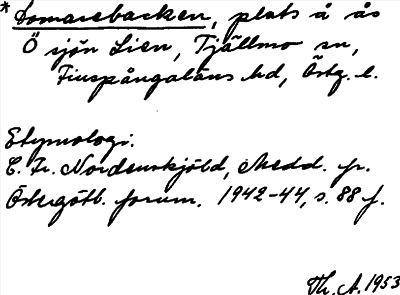 * Domarebacken, plats å ås
Ö sjön Lien, Tjällmo sn,
Finspångaläns hd, Östg. l.
Etymologi.
C. Fr. Nordenskjöld, Medd. fr.
Östergötl. fornm. 1942-44, s. 88 f.
Th. A. 1953